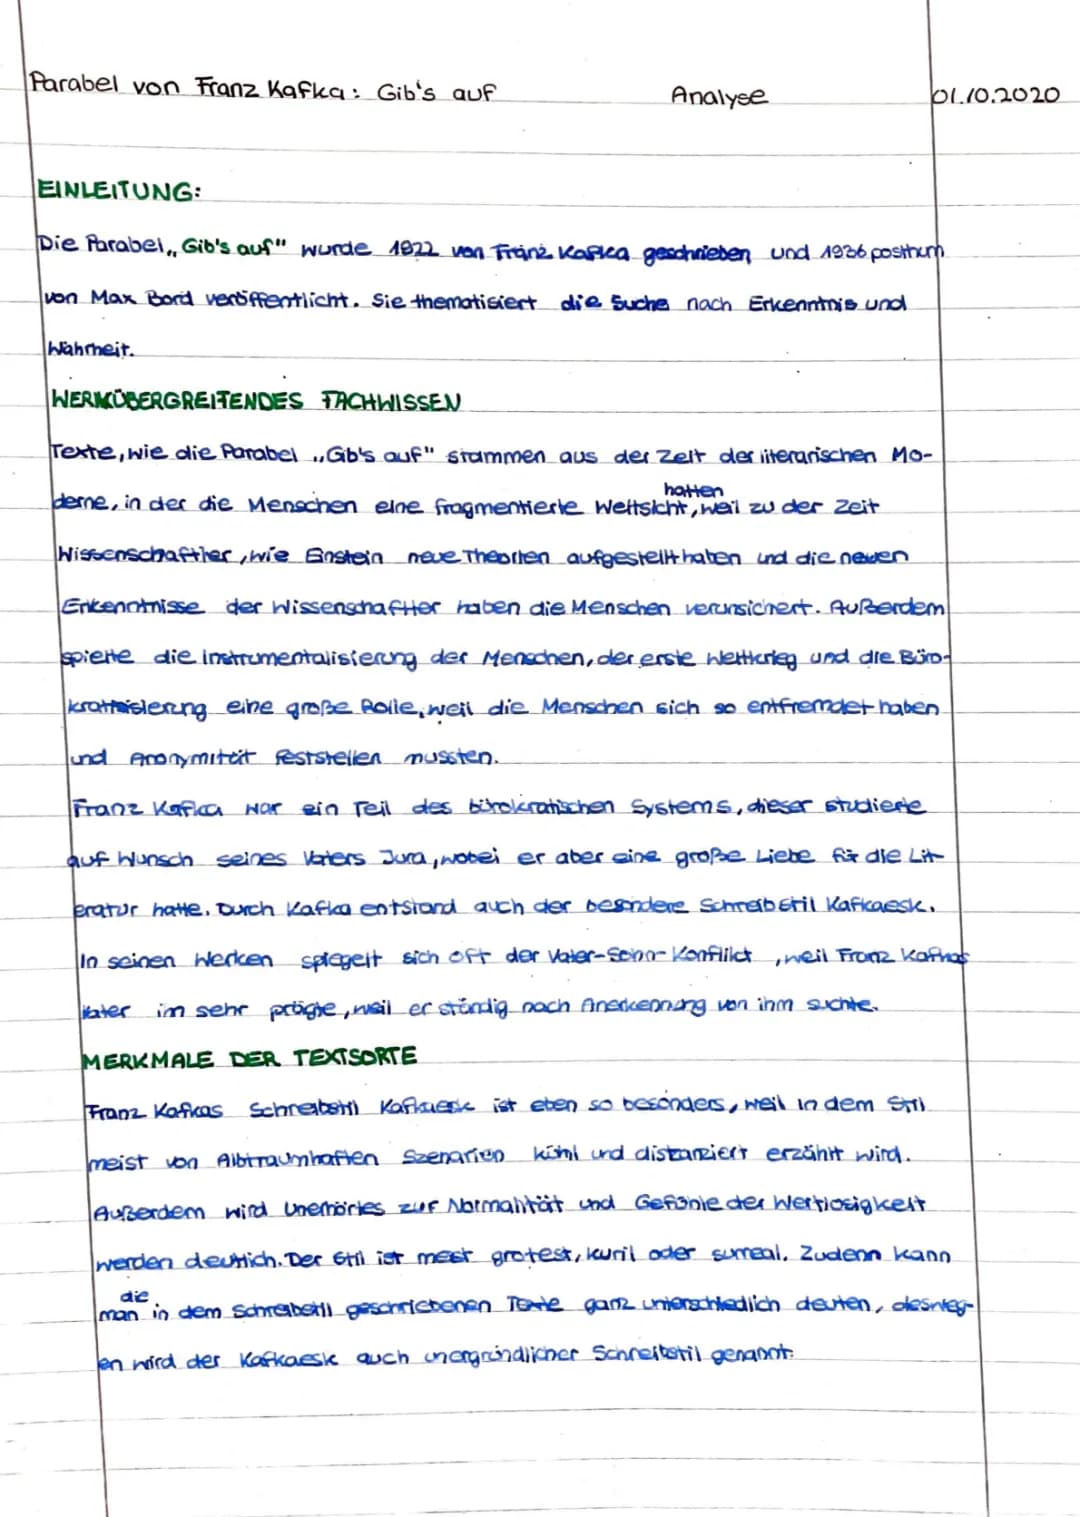 Parabel von Franz Kafka: Gib's auf Analyse 01.10.2020
EINLEITUNG:
Die Parabel „Gib's auf" wurde 1922 von Franz Kafka geschrieben und 1936 posthum
von Max Bord veröffentlicht. Sie thematisiert die Suche nach Erkenntnis und
Wahrheit.
WERKÜBERGREIFENDES FACHWISSEN
Texte, wie die Parabel „Gib's auf" stammen aus der Zeit der literarischen Mo-
hatten
derne, in der die Menschen eine fragmentierte Weltsicht, weil zu der Zeit
Wissenschaftler, wie Einstein neue Theorien aufgestellt haben und die neuen
Erkenntnisse der Wissenschaftler haben die Menschen verunsichert. Außerdem
spielte die Instrumentalisierung der Menschen, der erste Weltkrieg und die Büro-
kratisierung eine große Rolle, weil die Menschen sich so entfremdet haben
und Anonymität feststellen mussten.
Franz Kafka war ein Teil des bürokratischen Systems, dieser studierte
auf Wunsch seines Vaters Jura, wobei er aber eine große Liebe für die Lit-
eratur hatte. Durch Kafka entstand auch der besondere Schreibstil Kafkaesk.
In seinen Werken spiegelt sich oft der Vater-Sohn-Konflikt, weil Franz Kafkas
Vater im sehr prägte, weil er ständig nach Anerkennung von ihm suchte.
MERKMALE DER TEXTSORTE
Franz Kafkas Schreibstil Kafkaesk ist eben so besonders, weil in dem Stil
meist von Albtraumhaften Szenarien kühl und distanziert erzählt wird.
Außerdem wird Unerhörtes zur Normalität und Gefühle der Wertlosigkeit
werden deutlich. Der Stil ist meist grotest, kuril oder surreal. Zudenn kann
die
man in dem Schreibstil geschriebenen Texte ganz unterschiedlich deuten, desweg-
en wird der Kafkaesk auch unergründlicher Schreibstil genannt.